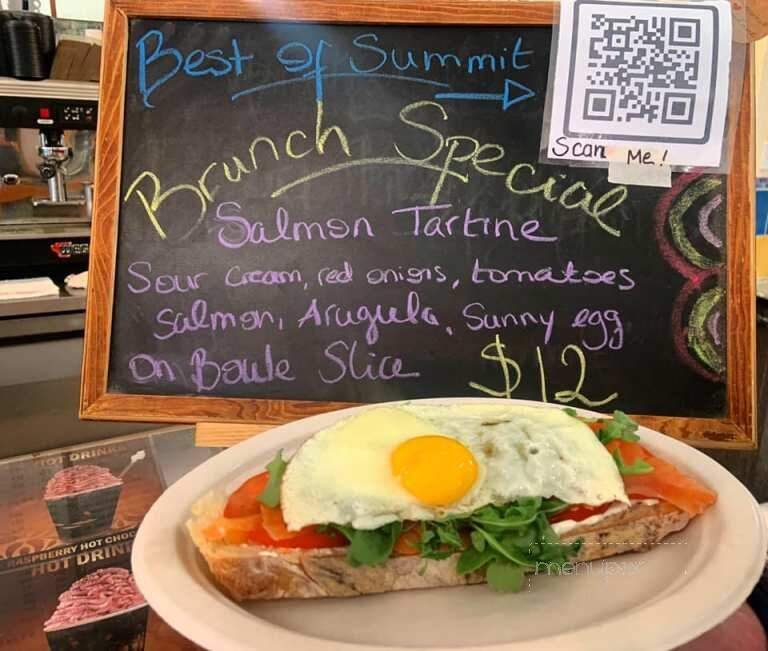 Best of Summit
Scan Me!
Brunch Special
Salmon Tartine
Sour Cream, red onions, tomatoes
Salmon, Arugula, Sunny egg
on Boule Slice $12
HOT DRINKS
RASPBERRY HOT CHOC
HOT DRIN
menupix